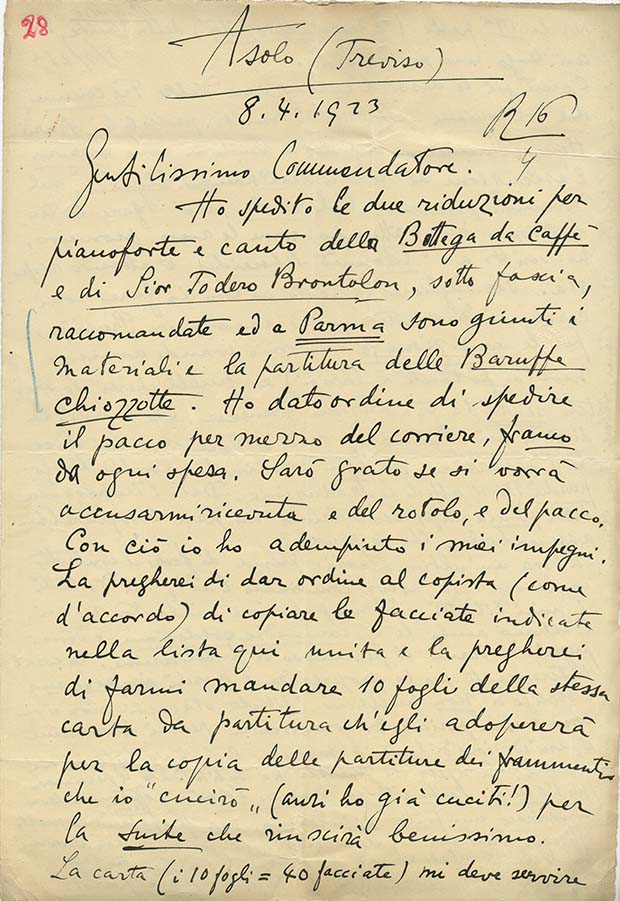 28
Asolo (Treviso)
8.4.1923
R 16
4
Gentilissimo Commendatore.
Ho spedito le due riduzioni per
pianoforte e canto della Bottega da Caffè
e di Sior Todero Brontolon, sotto fascia,
raccomandate ed a Parma sono giunti i
materiali e la partitura delle Baruffe
Chiozzotte. Ho dato ordine di spedire
il pacco per mezzo del corriere, franco
da ogni spesa. Sarò grato se si vorrà
accusarmi ricevuta e del rotolo, e del pacco.
Con ciò io ho adempiuto i miei impegni.
La pregherei di dar ordine al copista (come
d'accordo) di copiare le facciate indicate
nella lista qui unita e la pregherei
di farmi mandare 10 fogli della stessa
carta da partitura ch'egli adopererà
per la copia delle partiture dei frammenti
che io "cucirò" (anzi ho già cuciti!) per
la Suite che riuscirà benissimo.
La carta (i 10 fogli = 40 facciate) mi deve servire